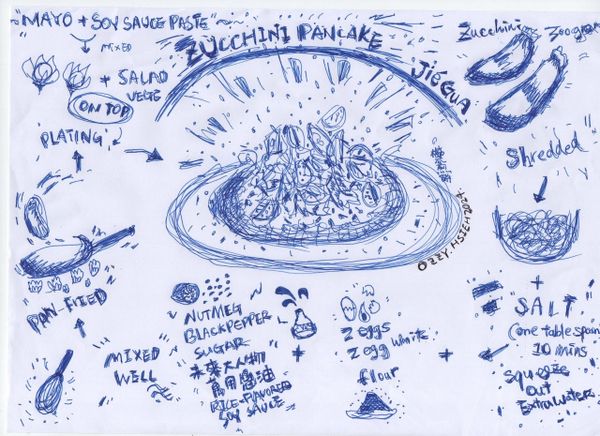 "MAYO + SOY SAUCE PASTE"
MIXED
+ SALAD
VEGS
ON TOP
PLATING
ZUCCHINI PANCAKE
JIEGUA
OZZY. HSIEH 2024.
Zucchini
Shredded
+
"SALT"
(one tablespoon
10 mins
squeeze
out
Extra water
+
2 eggs
2 egg white
flour
+
NUTMEG
BLACKPEPPER
SUGAR
未來大人物
萬用醬油
RICE-FLAVORED
SOY SAUCE
MIXED
WELL
PAN-FRIED